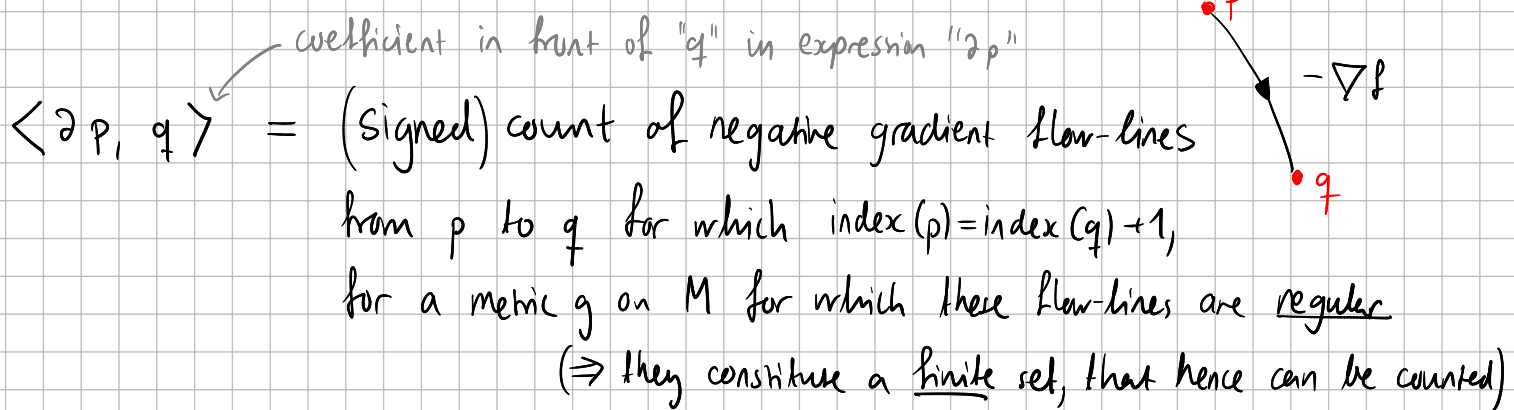 coefficient in front of "q" in expression "∂p"
p
-∇f
<∂p, q> = (signed) count of negative gradient flow-lines
q
from p to q for which index(p)=index(q)+1,
for a metric g on M for which these flow-lines are regular
(⇒ they constitute a finite set, that hence can be counted)